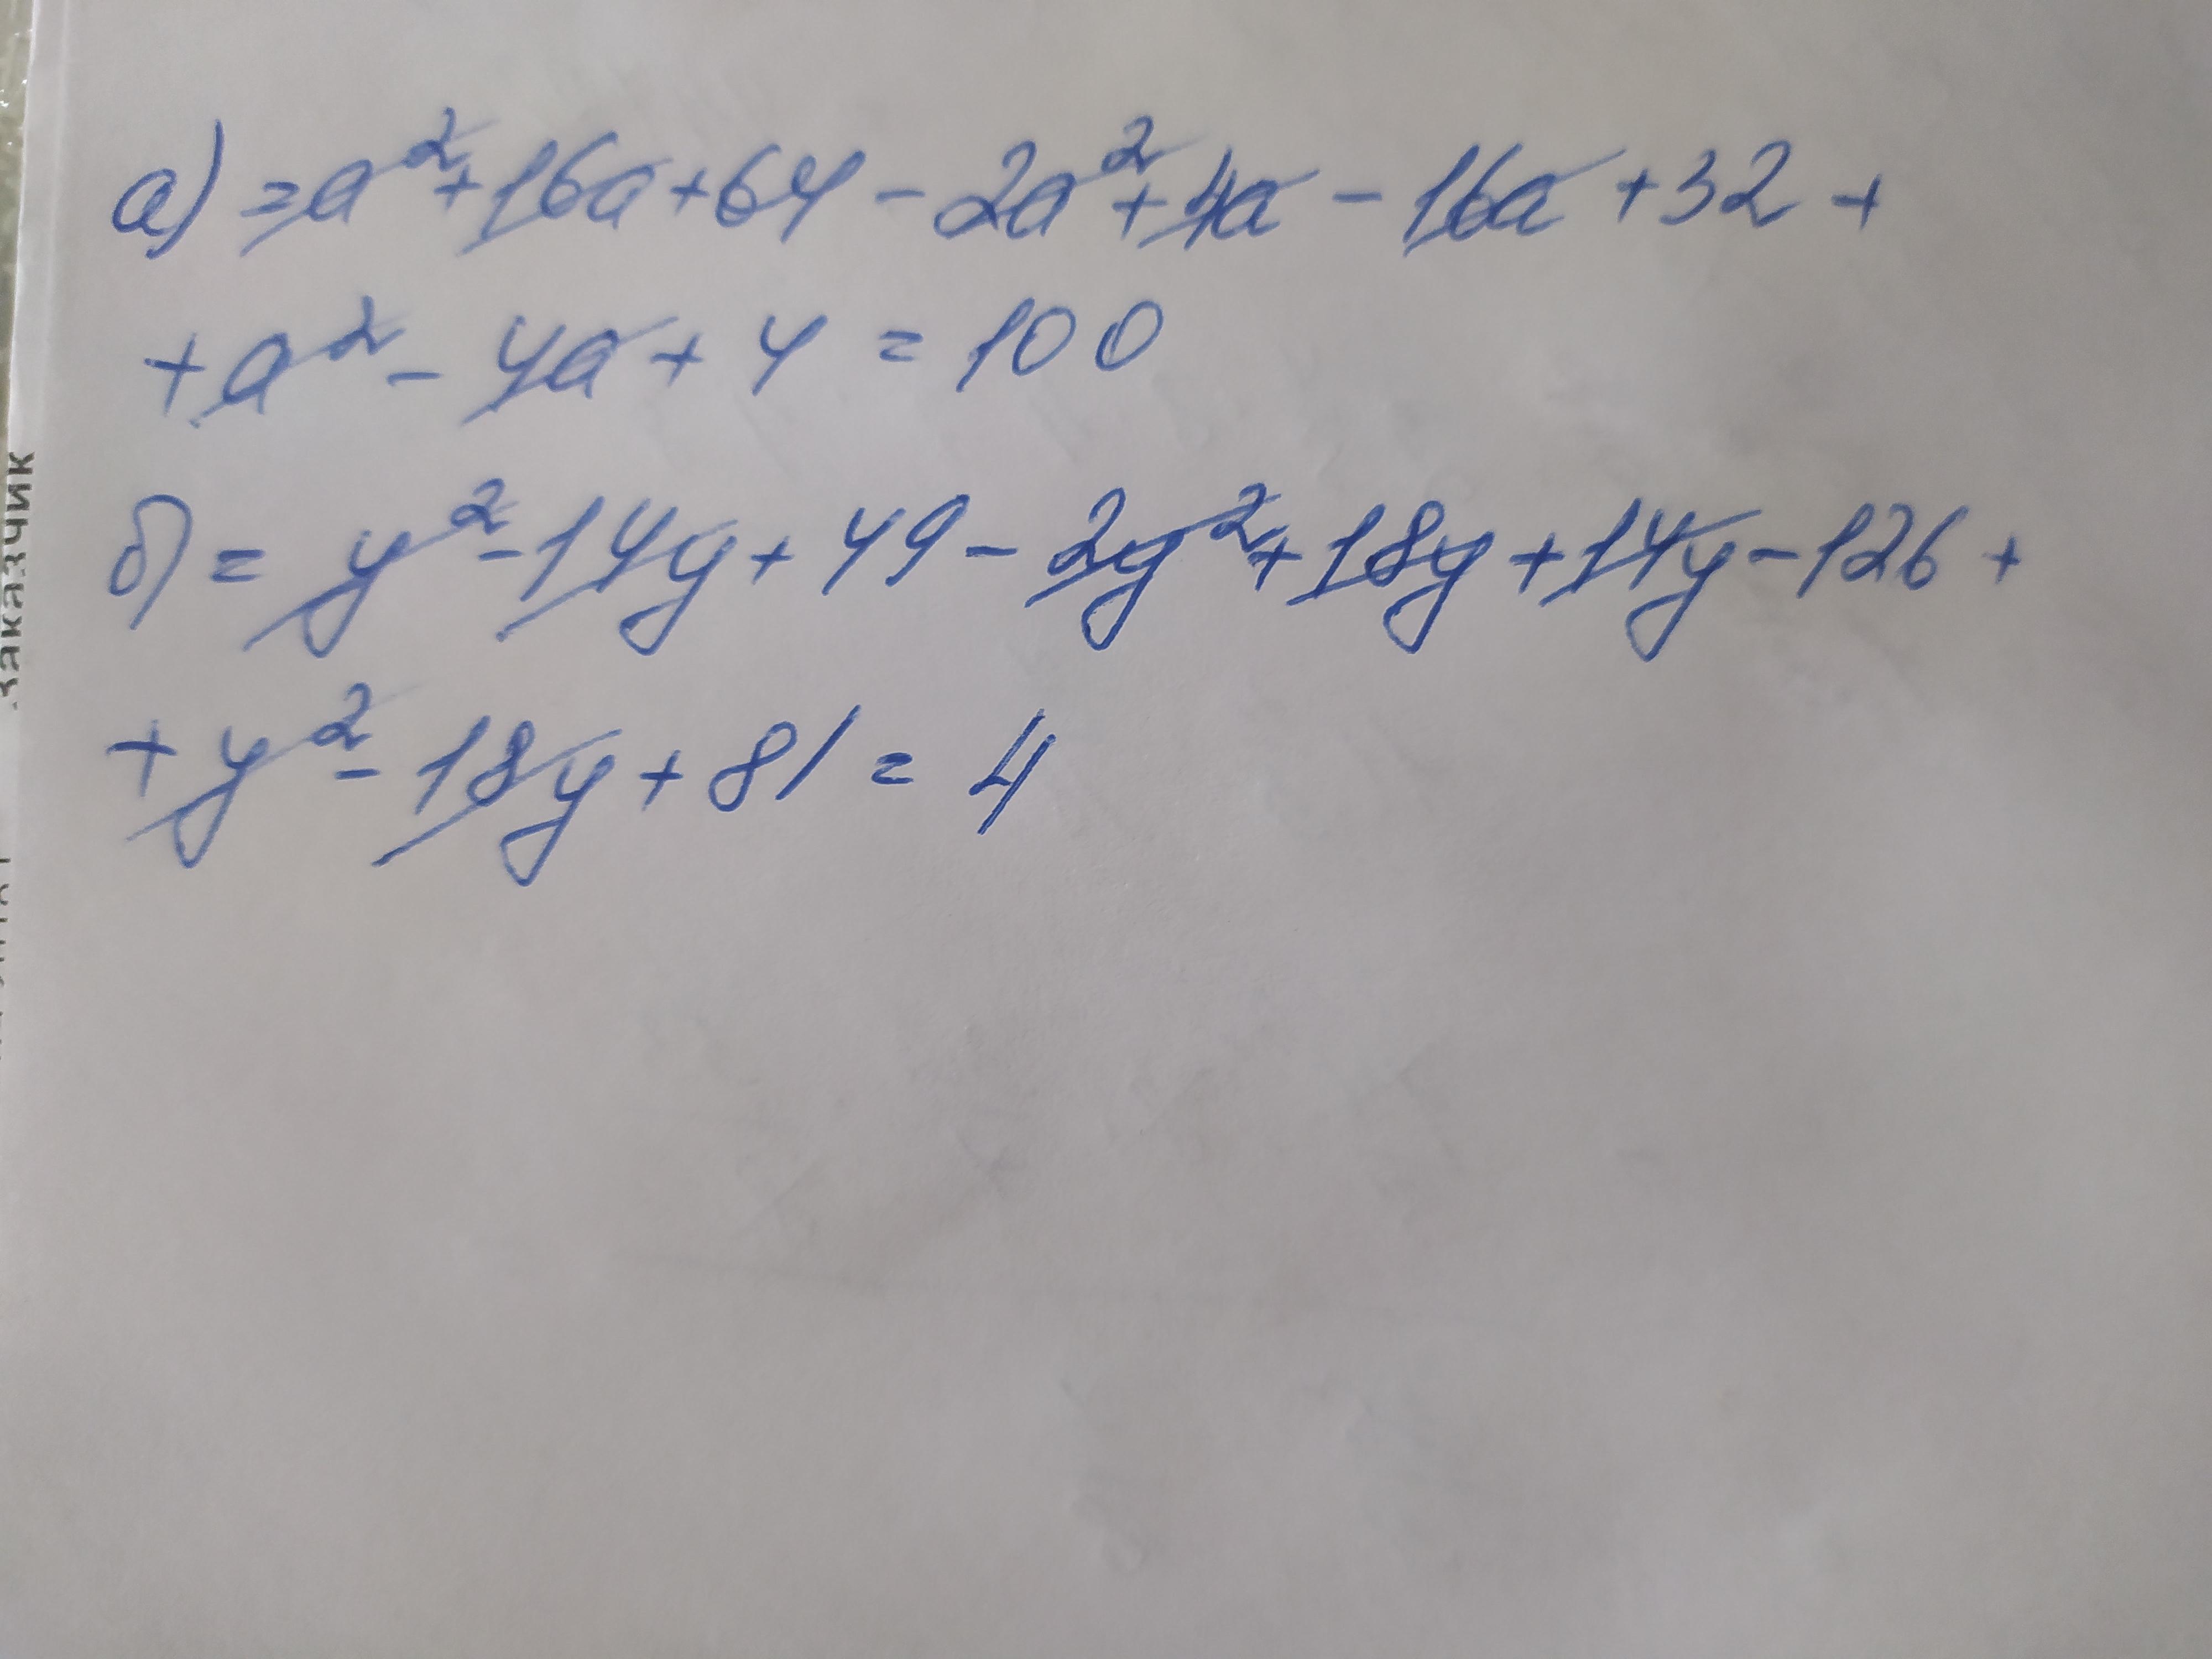 а) = a² + 16a + 64 - 2a² + 4a - 16a + 32 +
+ a² - 4a + 4 = 100
б) = y² - 14y + 49 - 2y² + 18y + 14y - 126 +
+ y² - 18y + 81 = 4
заказчик